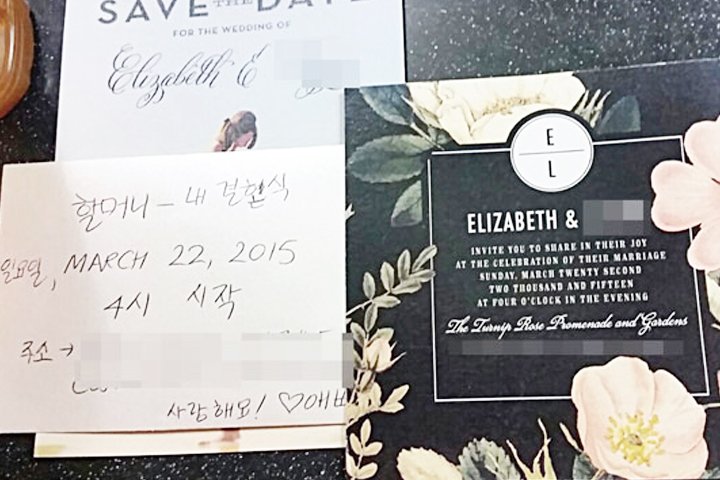 SAVE THE DATE
FOR THE WEDDING OF
Elizabeth &
할머니 - 내 결혼식
일요일, MARCH 22, 2015
4시 시작
주소 →
사랑해요! ♡애
E
L
ELIZABETH &
INVITE YOU TO SHARE IN THEIR JOY
AT THE CELEBRATION OF THEIR MARRIAGE
SUNDAY, MARCH TWENTY SECOND
TWO THOUSAND AND FIFTEEN
AT FOUR O'CLOCK IN THE EVENING
The Turnip Rose Promenade and Gardens